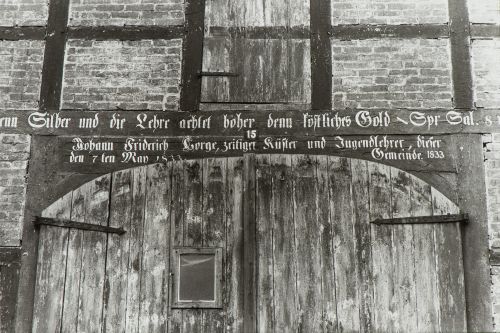 enn Silber und die Lehre achtet höher denn köstliches Gold Spr Sal. 8
15
Johann Friedrich Lorge, zeitiger Küster und Jugendlehrer, dieser
den 7 ten May Gemeinde. 1833